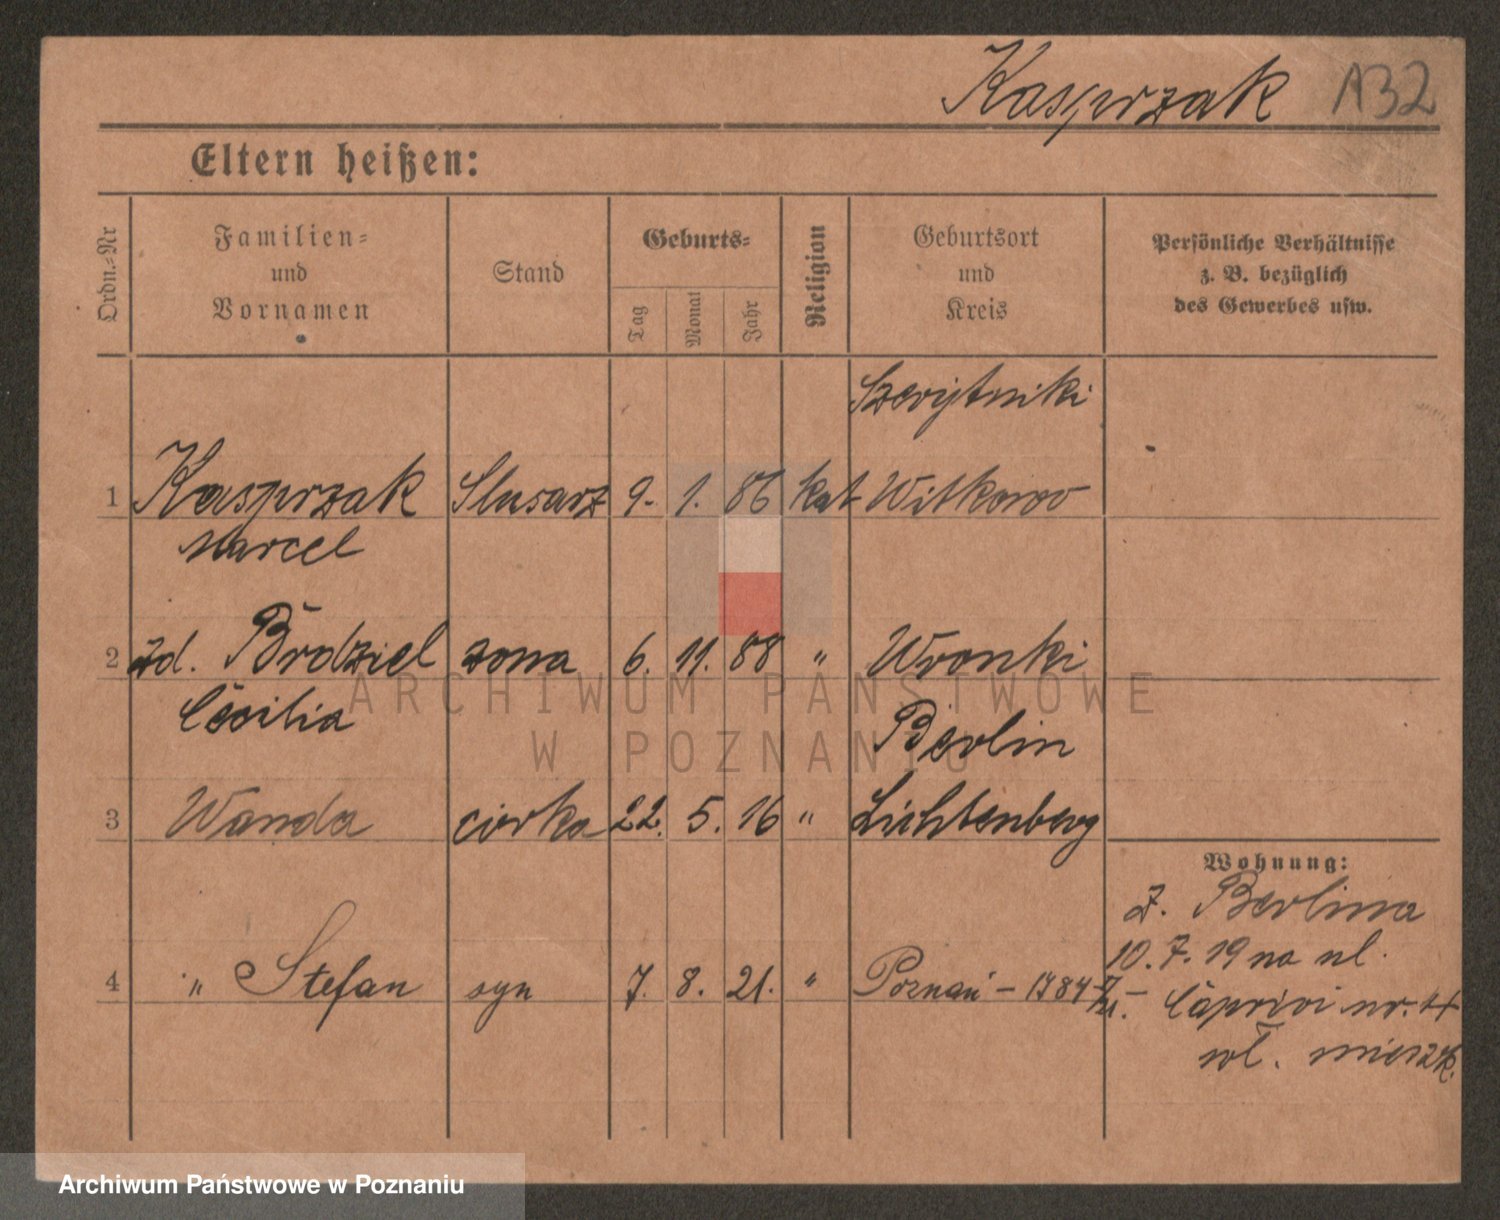 Kasprzak A32
Eltern heißen:
Ordn.-Nr
Familien-
und
Vornamen
Stand
Geburts-
Tag
Monat
Jahr
Religion
Geburtsort
und
Kreis
Persönliche Verhältnisse
z. B. bezüglich
des Gewerbes usw.
1 Kasprzak Slusarz 9. 1. 86 kat Witkowo
Marcel
2 zd. Brdziel zona 6. 11. 88 " Wronki
Cecilia
Berlin
3 Wanda corka 22. 5. 16 " Lichtenberg
Wohnung:
z. Berlina
10. 7. 19 na ul.
4 " Stefan syn 7. 8. 21. " Poznań - 1784
Caprivi nr. 4
wł. mieszk.
ARCHIWUM PAŃSTWOWE
W POZNANIU
Archiwum Państwowe w Poznaniu